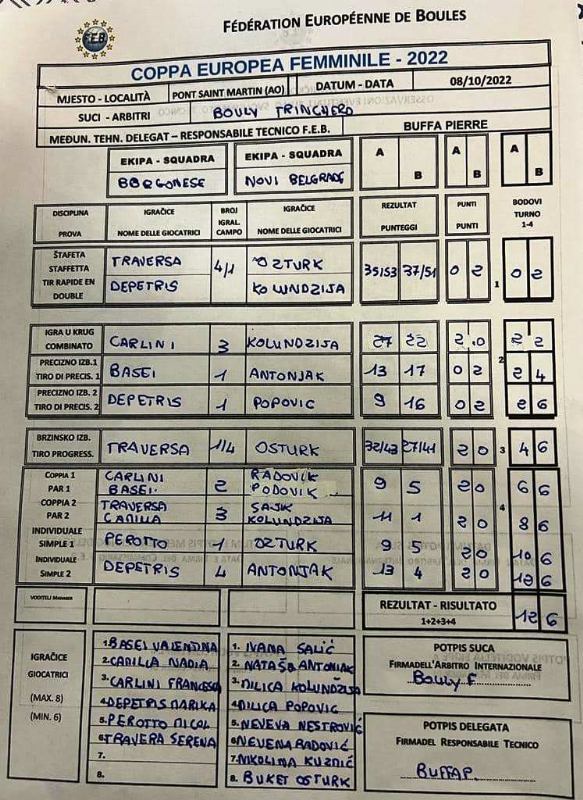 FÉDÉRATION EUROPÉENNE DE BOULES
F.E.B.
COPPA EUROPEA FEMMINILE - 2022
MJESTO - LOCALITÀ PONT SAINT MARTIN (AO) DATUM - DATA 08/10/2022
SUCI - ARBITRI BOULY TRINCHERO
MEĐUN. TEHN. DELEGAT – RESPONSABILE TECNICO F.E.B. BUFFA PIERRE
EKIPA - SQUADRA EKIPA - SQUADRA A B A B A B
BORGONESE NOVI BELGRADE
DISCIPLINA IGRAČICE BROJ IGRAČICE REZULTAT PUNTI BODOVI
IGRAL. TURNO
PROVA NOME DELLE GIOCATRICI CAMPO NOME DELLE GIOCATRICI PUNTEGGI PUNTI 1-4
ŠTAFETA
STAFFETTA TRAVERSA 4/1 OZTURK 35/53 37/51 0 2 1 0 2
TIR RAPIDE EN
DOUBLE DEPETRIS KOLUNDZIJA
IGRA U KRUG
COMBINATO CARLINI 3 KOLUNDZIJA 27 22 2.0 2 2
PRECIZNO IZB.1
TIRO DI PRECIS. 1 BASEI 1 ANTONJAK 13 17 0 2 2 2 4
PRECIZNO IZB. 2
TIRO DI PRECIS. 2 DEPETRIS 1 POPOVIC 9 16 0 2 2 6
BRZINSKO IZB.
TIRO PROGRESS. TRAVERSA 1/4 OSTURK 32/43 27/41 2 0 3 4 6
COPPIA 1 CARLINI RADOVIK
PAR 1 BASEI 2 PODOVIK 9 5 2 0 6 6
COPPIA 2 TRAVERSA SAJK
PAR 2 CADILLA 3 KOLUNDZIJA 11 1 2 0 4 8 6
INDIVIDUALE
SIMPLE 1 PEROTTO 1 OZTURK 9 5 2 0 10 6
INDIVIDUALE
SIMPLE 2 DEPETRIS 4 ANTONJAK 13 4 2 0 6
VODITELI MANAGER REZULTAT - RISULTATO
1+2+3+4 12 6
IGRAČICE
GIOCATRICI
(MAX. 8)
(MIN. 6)
1. BASEI VALENTINA
2. CADILLA NADIA
3. CARLINI FRANCESCA
4. DEPETRIS MARIKA
5. PEROTTO NICAL
6. TRAVERA SERENA
7.
8.
1. IVANA SALIĆ
2. NATAŠA ANTONIAK
3. MILICA KOLUNDZIJA
4. MILICA POPOVIC
5. NEVEVA NESTROVIĆ
6. NEVENA RADOVIĆ
7. NIKOLINA
8. BUKET OSTURK
POTPIS SUCA
FIRMADELL'ARBITRO INTERNAZIONALE
Bouly F
POTPIS DELEGATA
FIRMADEL RESPONSABILE TECNICO
BUFFAP.